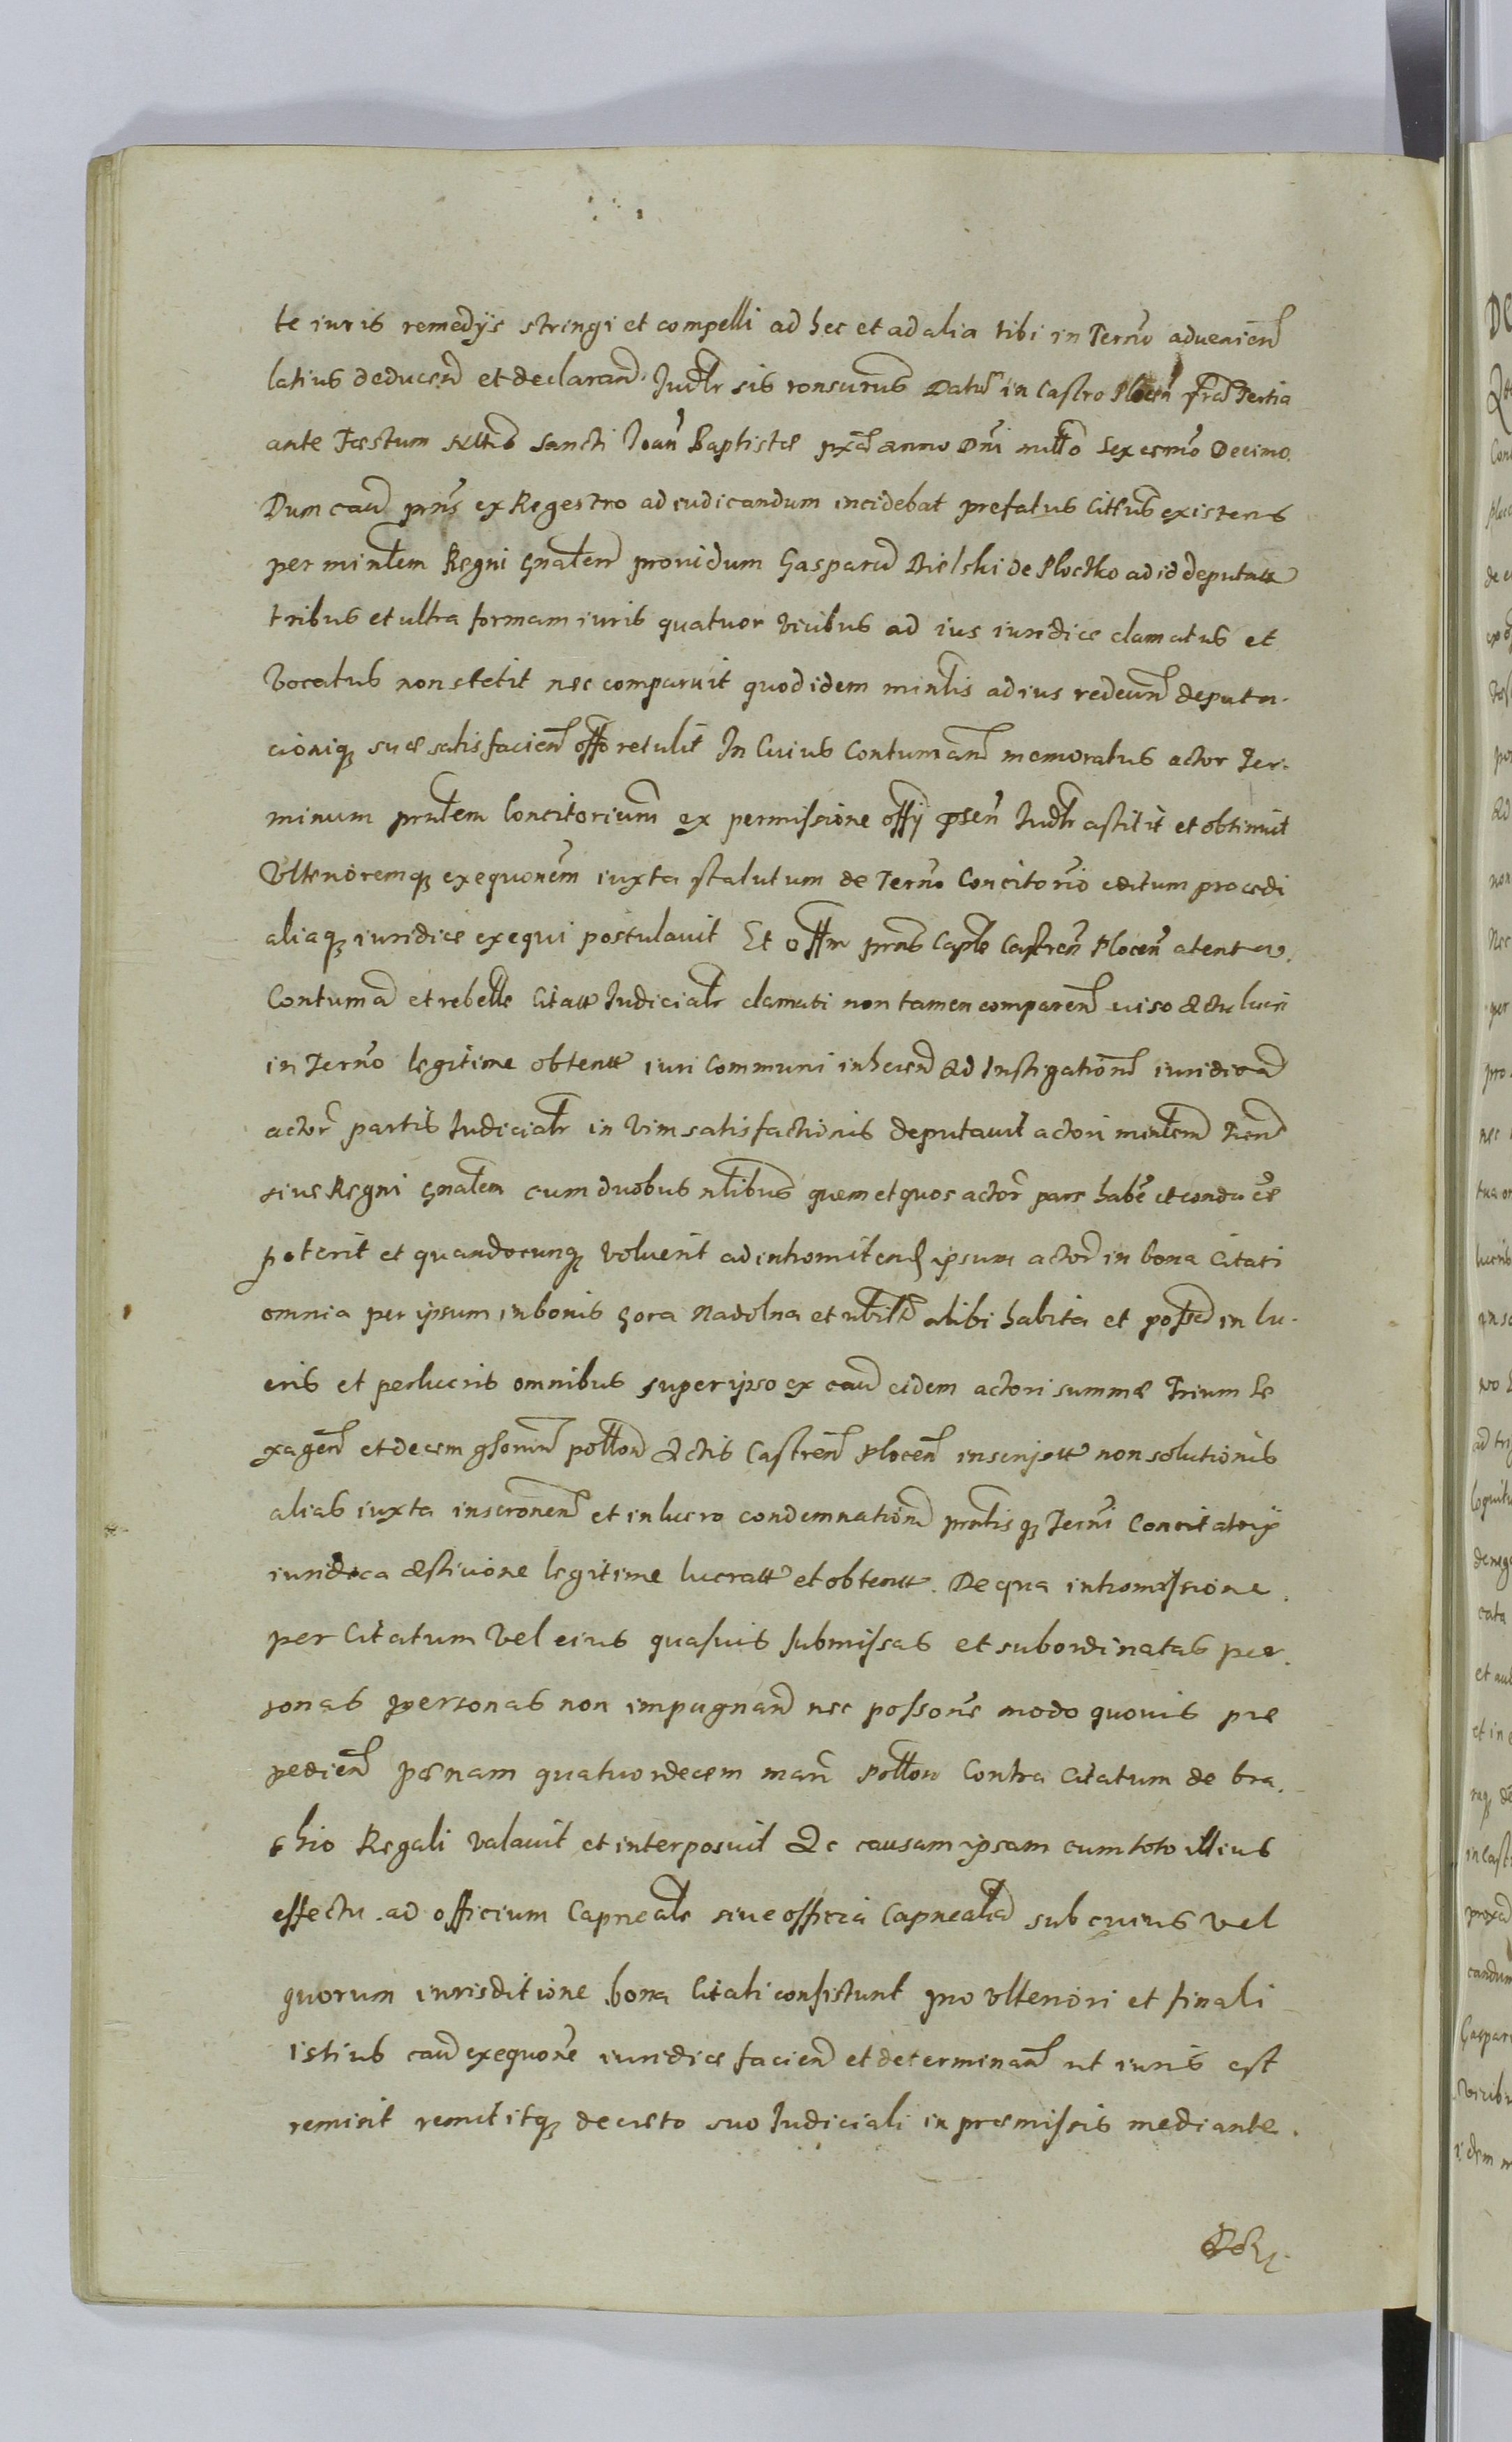 te iuris remedijs stringi et compelli ad hec et ad alia tibi in Terno advenien
latius deducen et declarand Judlr sis ronsurus Datu in Castro Plocen fra Tertia
ante Fæstum Sancti Joan Baptistæ pxa anno Dni millo Sexcesmo Decimo.
Dum cau prns ex Regestro ad iudicandum incidebat prefatus Cittus existens
per minlem Regni gnalem providum Gasparu Bielski de Plocsko ad id deputatt
tribus et ultra formam iuris quatuor vicibus ad ius iuridice clamatus et
Vocatus non stetit nec comparuit quod idem minlis ad ius redeun deputa-
cioniq suæ satisfacien offo retulit In Cuius Contuman memoratus actor Ter-
minum prntem Concitorium ex permissione offij psen Judlr astitit et obtinuit
Ulterioremq exequonem iuxta statutum de Terno Concitorio editum procedi
aliaq iuridice exequi postulavit Et offm prns Caple Castren Plocen atenta
Contuma et rebelle Citatt Judicialr clamati non tamen comparen viso actu lucri
in Terno legitime obtentt iuri Communi inheren ad Instigationem iuridica
actor partis Judicialr in Vim satisfactionis deputavit actori minlem Tren
sive Regni gnalem cum duobus nlibus quem et quos actor pars habe et conduce
poterit et quandocunq voluerit ad intromitend ipsum actor in bona Citati
omnia per ipsum in bonis Gora Nadolna et ubili alibi habita et possa in lu-
cris et perlucris omnibus super ipso ex cau eidem actori summæ Trium Se
xagen et decem gsorum pollon Actis Castren Plocen inscriptt non solutionis
alias iuxta inscronem et in lucro condemnation prntisq Terni Concitatorij
iuridica astitione legitime lucratt et obtentt. De qua intromissione
per Citatum Vel eius quasuis submissas et subordinatas per-
sonas personas non impugnan nec possone modo quovis præ
pedien pænam quatuordecem mar Pollon Contra Citatum de bra-
chio Regali valavit et interposuit Ac causam ipsam cum toto illius
effectu ad officium Capneale sive officia Capnealia sub cuius vel
quorum iurisditione bona Citati consistunt pro ulteriori et finali
istius cau exequone iuridice facien et determinan ut iuris est
remisit remititq decreto suo Judiciali in præmissis mediante.